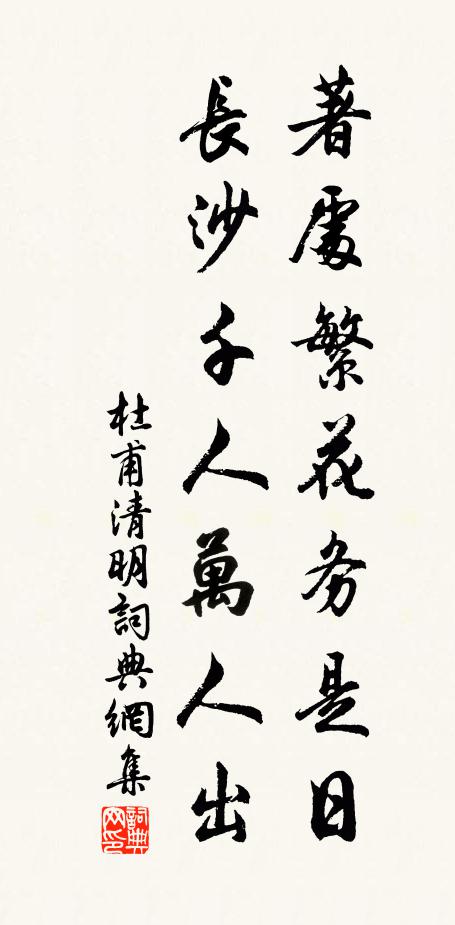 著處繁花务是日
長沙千人萬人出
杜甫清明詞典網集
詞典网印